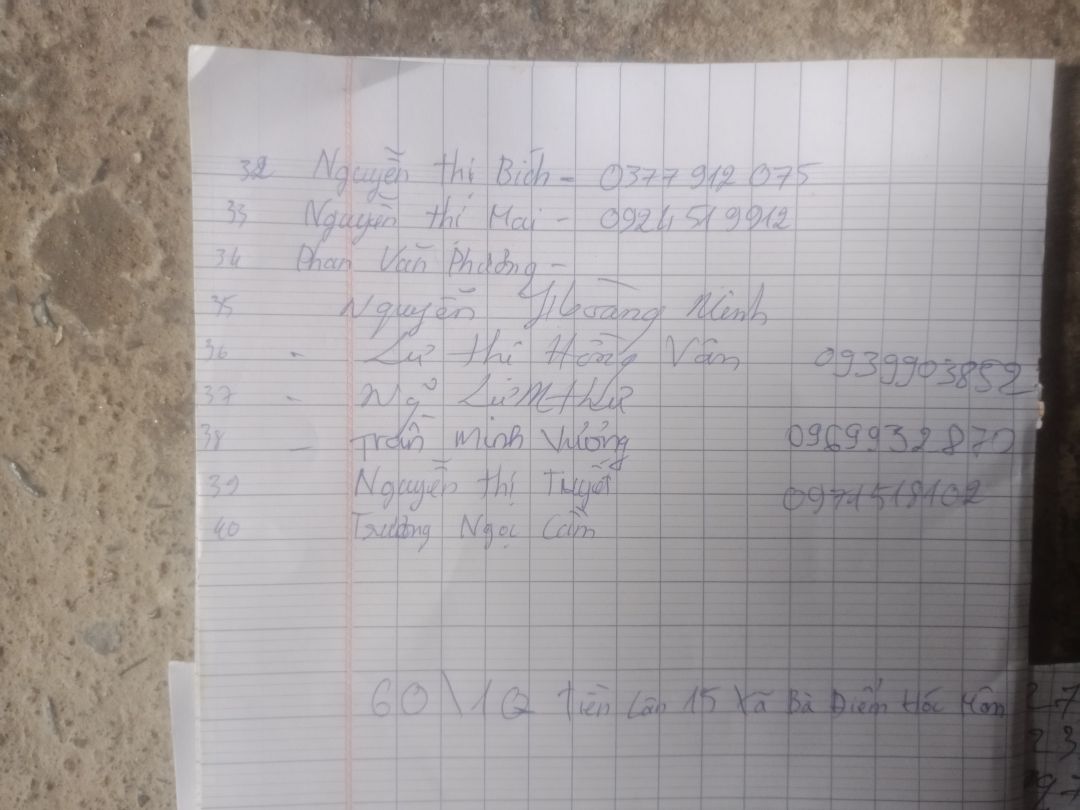 32 Nguyễn thị Bích - 0377 912 075
33 Nguyễn thị Mai - 0924519912
34 Phan Văn Phương -
35 Nguyễn Hoàng Minh
36 - Lư thị Hồng Vân 0939903852
37 - Ngô Lư M thư
38 - Trần Minh Vương 0969932870
39 Nguyễn thị Tuyết 0971518102
40 Trương Ngọc Cẩm
60\1Q Tiền Lân 15 Xã Bà Điểm Hóc Môn
27
23
97